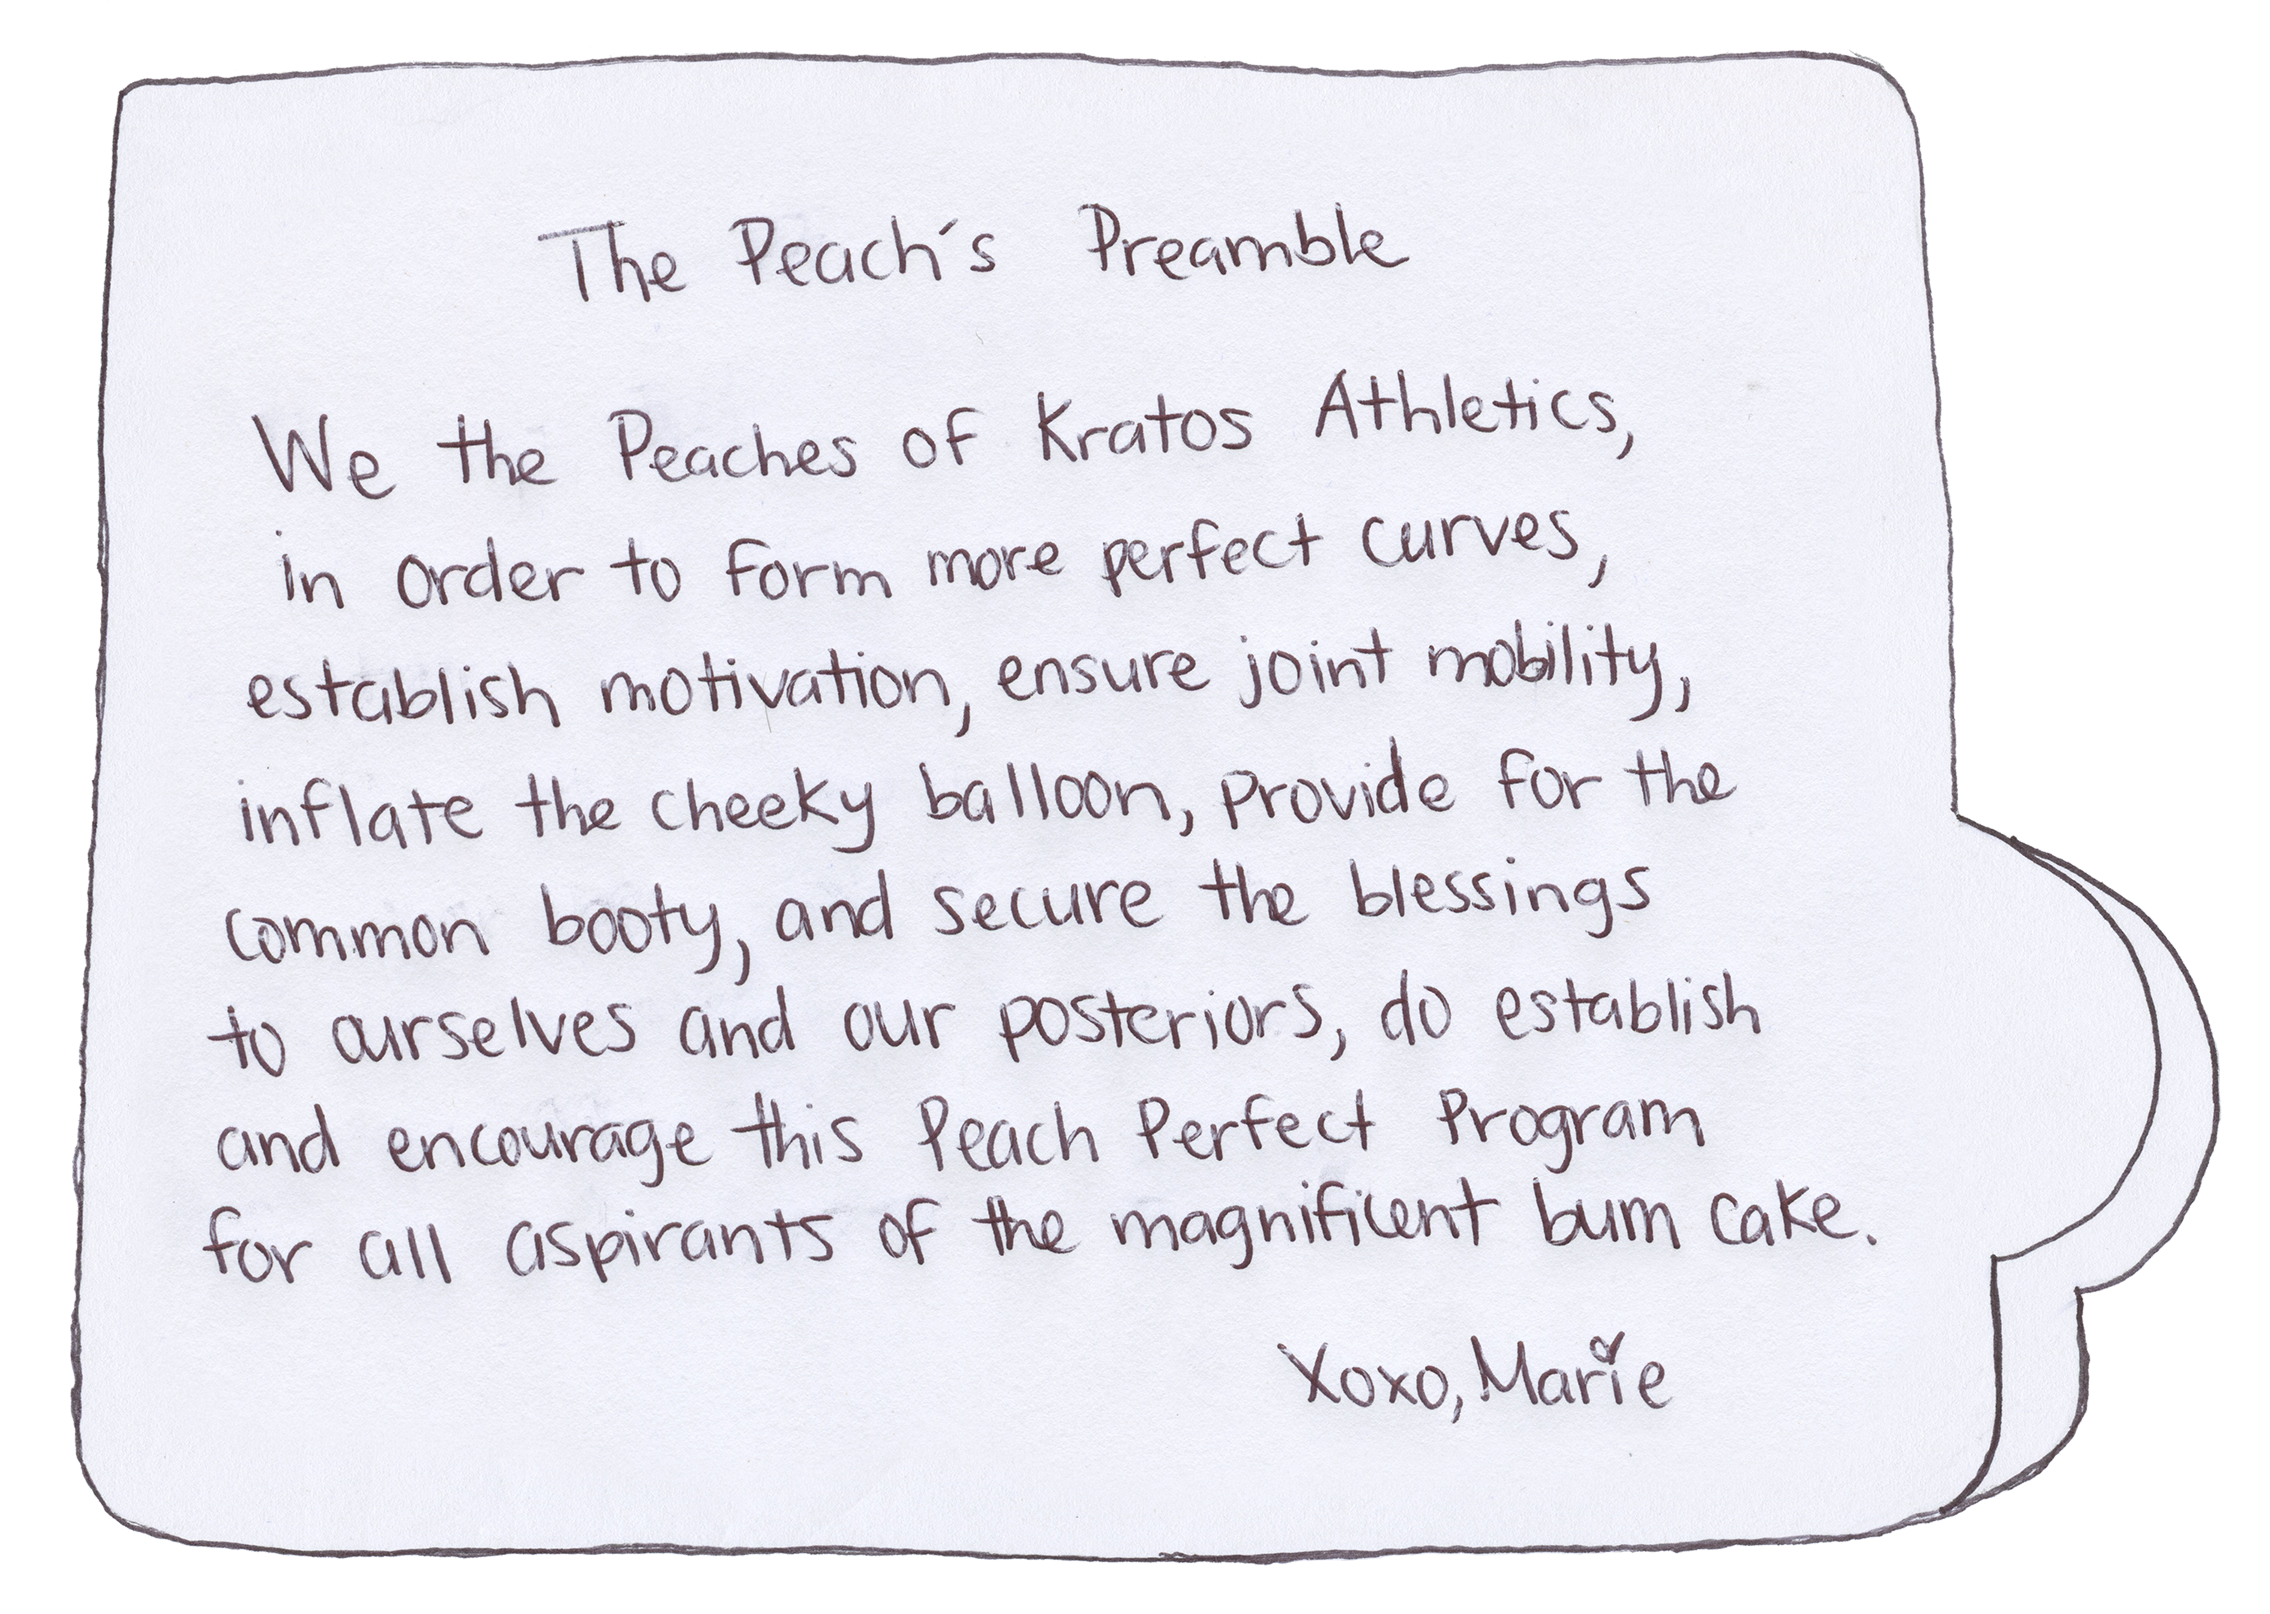 The Peach's Preamble
We the Peaches of Kratos Athletics,
in order to form more perfect curves,
establish motivation, ensure joint mobility,
inflate the cheeky balloon, provide for the
common booty, and secure the blessings
to ourselves and our posteriors, do establish
and encourage this Peach Perfect Program
for all aspirants of the magnificent bum cake.
Xoxo, Marie